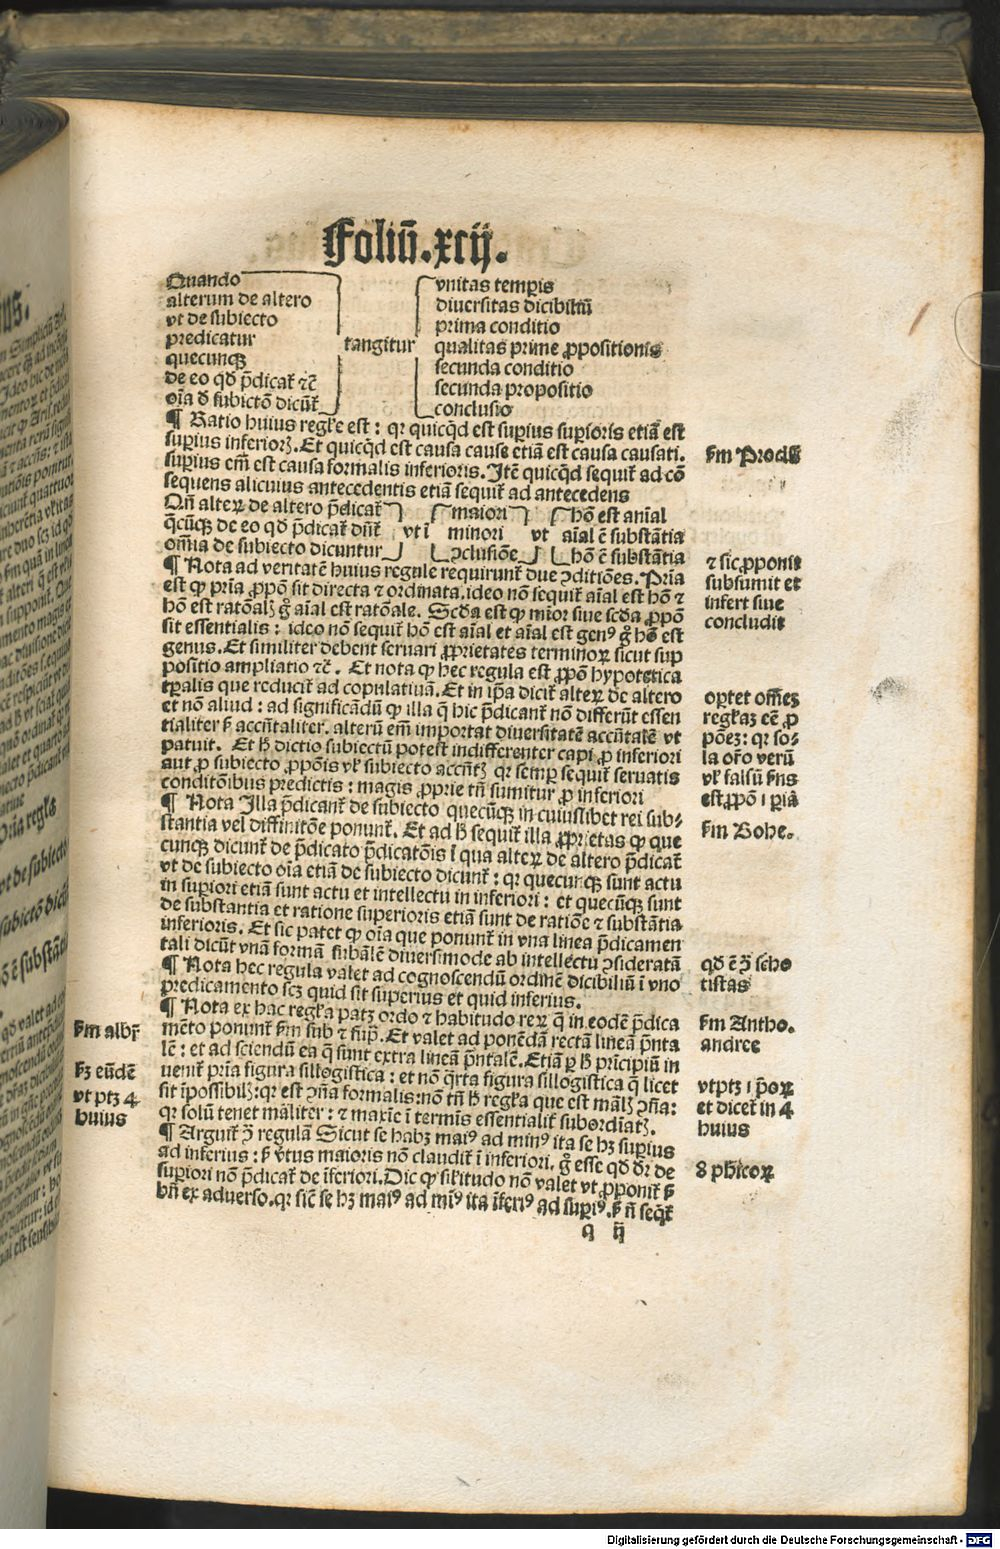 Foliū.xcij.
Quando
alterum de altero
vt de subiecto
predicatur
quecunqꝫ
de eo qd̄ p̄dicat᷑ ⁊c̄
oīa d̄ subictō dicūt᷑
tangitur
vnitas temꝑis
diuersitas dicibiliū
prima conditio
qualitas prime ꝓpositionis
secunda conditio
secunda propositio
conclusio
¶ Ratio huius regl̓e est : qꝛ quicqd̄ est suꝑius suꝑioris etiā est
suꝑius inferioꝝ. Et quicqd̄ est causa cause etiā est causa causati.
suꝑius em̄ est causa formalis inferioris. Itē quicqd̄ sequit᷑ ad cō
sequens alicuius antecedentis etiā sequit᷑ ad antecedens
Qn̄ alteꝝ de altero p̄dicat᷑
qc̄ūqꝫ de eo qd̄ p̄dicat᷑ dn̄t᷑
omīa de subiecto dicuntur
vt ī
maiori
minori
ꝯclusiōe
vt
hō est anīal
aīal ē substātia
hō ē substātia
¶ Nota ad veritatē huius regule requirunt᷑ due ꝯditiōes. Pria
est ꝙ pria ꝓpō sit directa ⁊ ordinata. ideo nō sequit᷑ aīal est hō ⁊
hō est ratōnalꝭ gͦ aīal est ratōnale. Scd̄a est ꝙ mīor siue scd̄a ꝓpō
sit essentialis : ideo nō sequit᷑ hō est aīal et aīal est genꝰ gͦ hō est
genus. Et similiter debent seruari ꝓprietates terminoꝝ sicut sup
positio ampliatio ⁊c̄. Et nota ꝙ hec regula est ꝓpō hypotetica
tꝑalis que reducit᷑ ad copulatiuā. Et in ip̄a dicit᷑ alteꝝ de altero
et nō aliud : ad significādū ꝙ illa q̄ hic p̄dicant᷑ nō differūt essen
tialiter s̄ accn̄taliter. alterū em̄ importat diuersitatē accn̄talē vt
patuit. Et h̄ dictio subiectū potest indifferenter capi ꝓ inferiori
aut ꝓ subiecto ꝓpōis vl̓ subiecto accn̄tꝭ qꝛ semꝑ sequit᷑ seruatis
conditōibus predictis : magis ꝓprie tn̄ sumitur ꝓ inferiori
¶ Nota Illa p̄dicant᷑ de subiecto quecūqꝫ in cuiuslibet rei sub⸗
stantia vel diffinitōe ponunt᷑. Et ad h̄ sequit᷑ illa ꝓprietas ꝙ que
cunqꝫ dicunt᷑ de p̄dicato p̄dicatōis ī qua alteꝝ de altero p̄dicat᷑
vt de subiecto oīa etiā de subiecto dicunt᷑ : qꝛ quecunqꝫ sunt actu
in suꝑiori etiā sunt actu et intellectu in inferiori : et quecūqꝫ sunt
de substantia et ratione superioris etiā sunt de ratiōe ⁊ substātia
inferioris. Et sic patet ꝙ oīa que ponunt᷑ in vna linea p̄dicamen
tali dicūt vnā formā subālē diuersimode ab intellectu ꝯsideratā
¶ Nota hec regula valet ad cognoscendū ordinē dicibiliū ī vno
predicamento scꝫ quid sit superius et quid inferius.
¶ Nota ex hac regl̓a patꝫ ordo ⁊ habitudo reꝝ q̄ in eodē p̄dica
mēto ponunt᷑ s̄m sub ⁊ sup̄. Et valet ad ponēdā rectā lineā p̄nta
lē : et ad sciendū ea q̄ sunt extra lineā p̄ntalē. Etiā ꝑ h̄ prīcipiū in
uenit᷑ pria figura sillogistica : et nō q̄rta figura sillogistica q̄ licet
sit īpossibilꝭ: qꝛ est ꝯn̄a formalis: nō tn̄ h̄ regl̓a que est māl̓ꝭ ꝯn̄a:
qꝛ solū tenet māliter : ⁊ maxīe ī termīs essentialit᷑ subordīatꝭ.
¶ Arguit᷑ ꝯ̄ regulā Sicut se habꝫ maiꝰ ad minꝰ ita se hꝫ suꝑius
ad inferius : s̄ v̄tus maioris nō claudit᷑ ī inferiori. gͦ esse qd̄ dr̄ de
suꝑiori nō p̄dicat᷑ de īferiori. Dic ꝙ sil̓itudo nō valet vt ꝓponit᷑ s̄
bn̄ ex aduerso. qꝛ sic̄ se hꝫ maiꝰ ad miꝰ ita īferiꝰ ad suꝑiꝰ. s̄ n̄ seqt᷑
q ij
s̄m Procl̓
⁊ sic ꝓponit
subsumit et
infert siue
concludit
oꝑtet om̄es
regl̓as eē ꝓ
pōes: qꝛ so⸗
la or̄o verū
vl̓ falsū s̄ns
est ꝓpō ī pria
s̄m Bohe.
qd̄ ē ꝯ̄ scho
tistas
s̄m Antho.
andree
vt ptꝫ ī p̄oꝝ
et dicet᷑ in 4
huius
8 phīcoꝝ
s̄m alb̄
sꝫ eūdē
vt ptꝫ 4
huius